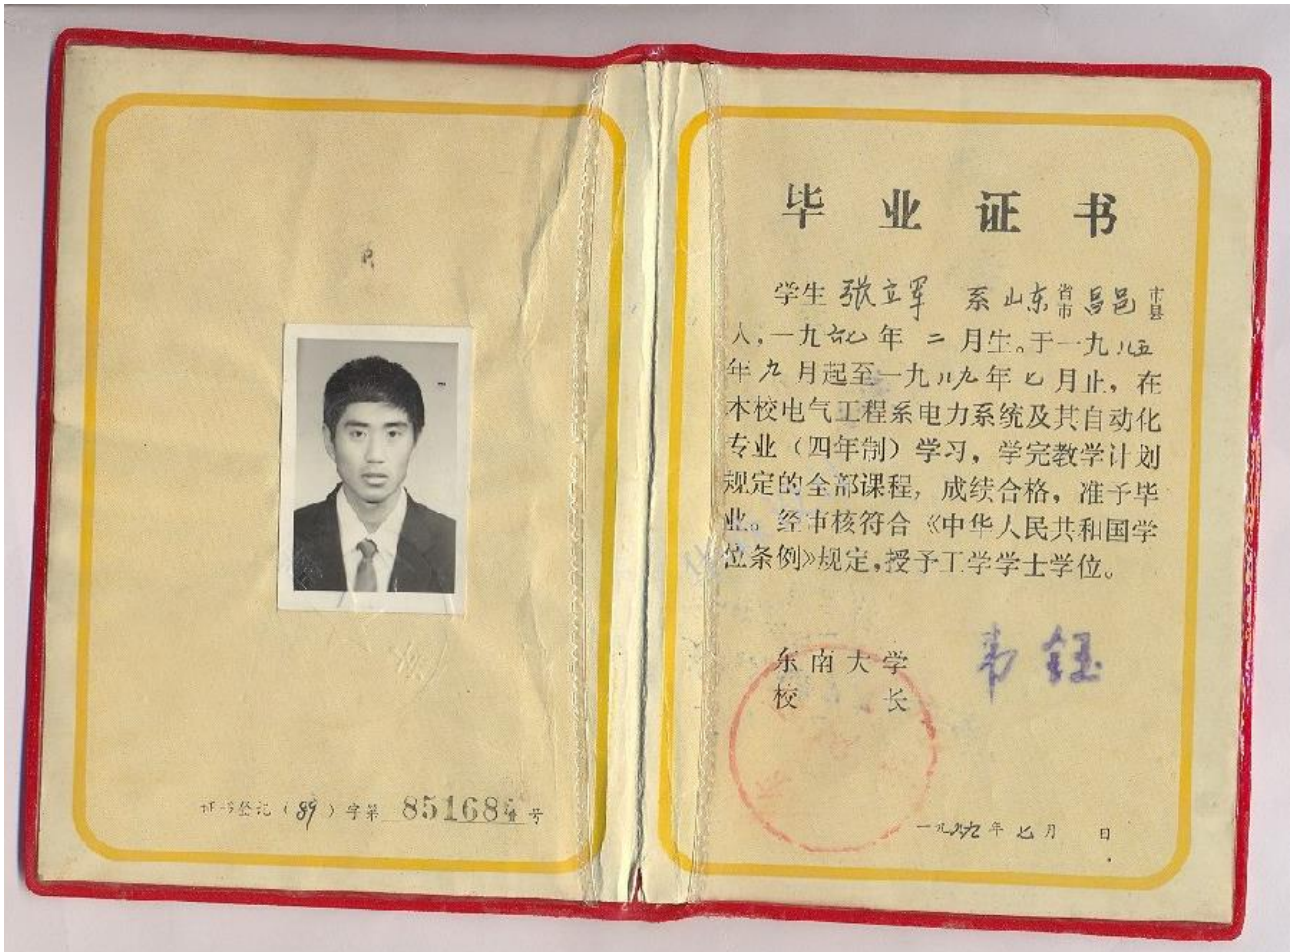 证书登记（89）字第 851684 号
毕业证书
学生 张立军 系 山东 省市 昌邑 市县
人，一九六七年 二 月生。于一九八五
年九月起至一九八九年七月止，在
本校电气工程系电力系统及其自动化
专业（四年制）学习，学完教学计划
规定的全部课程，成绩合格，准予毕
业。经审核符合《中华人民共和国学
位条例》规定，授予工学学士学位。
东南大学
校长
韦钰
一九八九年七月 日